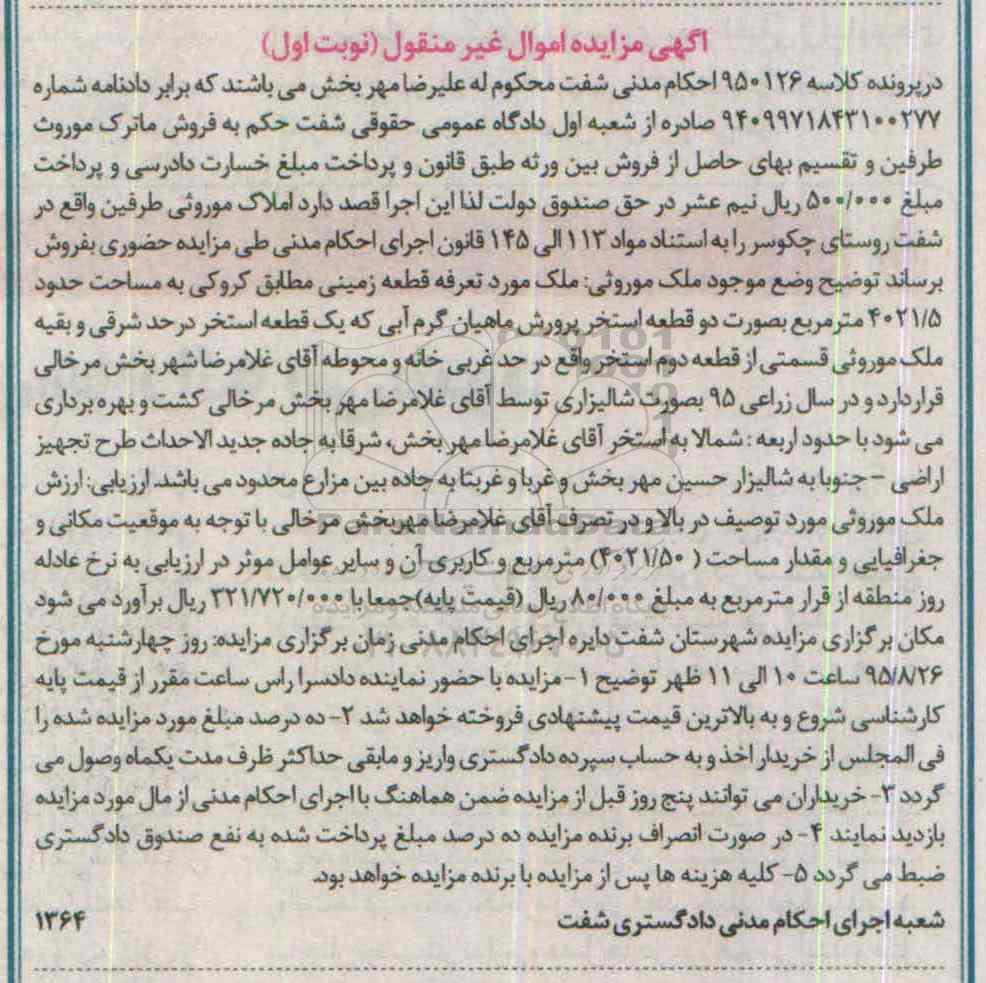 اگهی مزایده اموال غیر منقول (نوبت اول)
درپرونده کلاسه ۹۵۰۱۲۶ احکام مدنی شفت محکوم له علیرضا مهر بخش می باشند که برابر دادنامه شماره
۹۴۰۹۹۷۱۸۴۳۱۰۰۲۷۷ صادره از شعبه اول دادگاه عمومی حقوقی شفت حکم به فروش ماترک موروث
طرفین و تقسیم بهای حاصل از فروش بین ورثه طبق قانون و پرداخت مبلغ خسارت دادرسی و پرداخت
مبلغ ۵۰۰/۰۰۰ ریال نیم عشر در حق صندوق دولت لذا این اجرا قصد دارد املاک موروثی طرفین واقع در
شفت روستای چکوسر را به استناد مواد ۱۱۳ الی ۱۴۵ قانون اجرای احکام مدنی طی مزایده حضوری بفروش
برساند توضیح وضع موجود ملک موروثی: ملک مورد تعرفه قطعه زمینی مطابق کروکی به مساحت حدود
۴۰۲۱/۵ مترمربع بصورت دو قطعه استخر پرورش ماهیان گرم آبی که یک قطعه استخر درحد شرقی و بقیه
ملک موروثی قسمتی از قطعه دوم استخر واقع در حد غربی خانه و محوطه آقای غلامرضا شهر بخش مرخالی
قرار دارد و در سال زراعی ۹۵ بصورت شالیزاری توسط آقای غلامرضا مهر بخش مرخالی کشت و بهره برداری
می شود با حدود اربعه : شمالا به استخر آقای غلامرضا مهر بخش، شرقا به جاده جدید الاحداث طرح تجهیز
اراضی – جنوبا به شالیزار حسین مهر بخش و غربا و غربتا به جاده بین مزارع محدود می باشد. ارزیابی: ارزش
ملک موروثی مورد توصیف در بالا و در تصرف آقای غلامرضا مهربخش مرخالی با توجه به موقعیت مکانی و
جغرافیایی و مقدار مساحت ( ۴۰۲۱/۵۰) مترمربع و کاربری آن و سایر عوامل موثر در ارزیابی به نرخ عادله
روز منطقه از قرار مترمربع به مبلغ ۸۰/۰۰۰ ریال (قیمت پایه)جمعا با ۳۲۱/۷۲۰/۰۰۰ ریال برآورد می شود
مکان برگزاری مزایده شهرستان شفت دایره اجرای احکام مدنی زمان برگزاری مزایده: روز چهارشنبه مورخ
۹۵/۸/۲۶ ساعت ۱۰ الی ۱۱ ظهر توضیح ۱- مزایده با حضور نماینده دادسرا راس ساعت مقرر از قیمت پایه
کارشناسی شروع و به بالاترین قیمت پیشنهادی فروخته خواهد شد ۲- ده درصد مبلغ مورد مزایده شده را
فی المجلس از خریدار اخذ و به حساب سپرده دادگستری واریز و مابقی حداکثر ظرف مدت یکماه وصول می
گردد ۳- خریداران می توانند پنج روز قبل از مزایده ضمن هماهنگ با اجرای احکام مدنی از مال مورد مزایده
بازدید نمایند ۴- در صورت انصراف برنده مزایده ده درصد مبلغ پرداخت شده به نفع صندوق دادگستری
ضبط می گردد ۵- کلیه هزینه ها پس از مزایده با برنده مزایده خواهد بود.
شعبه اجرای احکام مدنی دادگستری شفت ۱۳۶۴